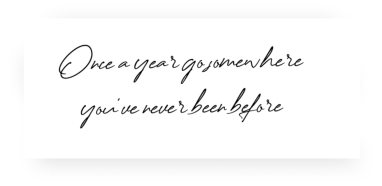 Once a year go somewhere
you've never been before